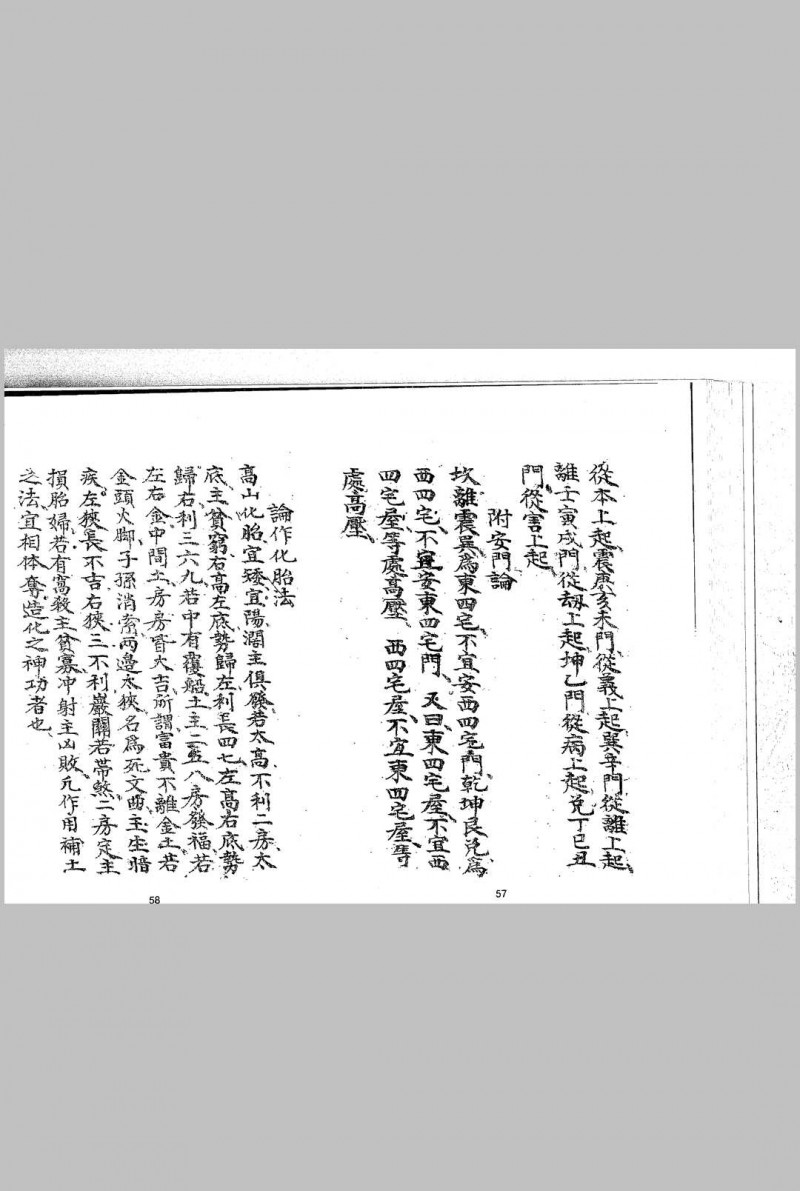 從本上起震庚亥未門、從義上起巽辛門從離上起
離壬寅戌門從刼上起坤乙門從病上起兌丁巳丑
門、從害上起、
附安門論
坎離震巽為東四宅不宜安西四宅門、乾坤艮兌為
西四宅、不宜安東四宅門、又曰、東四宅屋、不宜西
四宅屋、等處高壓、西四宅屋、不宜東四宅屋、等
處高壓、
57
論作化胎法
高山化胎宜矮宜陽濶主俱發若太高不利二房太
底主貧窮右高左底勢歸左利長四七左高右底勢
歸右利三六九若中有覆船土主二五八房發福、若
左右金中間土、房房皆大吉所謂富貴不離金土若
金頭火脚子孫消索兩邊太狹名為死文曲主生暗
疾。左狹長不吉右狹三不利巖關若帶煞二房定主
損胎婦若有窩殺主貧寡冲射主凶敗凡作用補土
之法宜相体奪造化之神功者也、
58